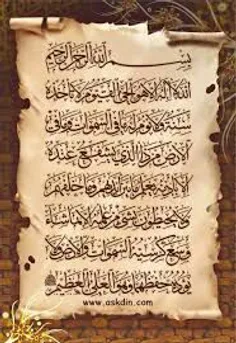 بِسْمِ اللهِ الرَّحْمنِ الرَّحِيمِ
اللهُ لَا إِلَهَ إِلَّا هُوَ الْحَيُّ الْقَيُّومُ لَا تَأْخُذُهُ
سِنَةٌ وَلَا نَوْمٌ لَهُ مَا فِي السَّمَوَاتِ وَمَا فِي
الْأَرْضِ مَنْ ذَا الَّذِي يَشْفَعُ عِنْدَهُ
إِلَّا بِإِذْنِهِ يَعْلَمُ مَا بَيْنَ أَيْدِيهِمْ وَمَا خَلْفَهُمْ
وَلَا يُحِيطُونَ بِشَيْءٍ مِنْ عِلْمِهِ إِلَّا بِمَا شَاءَ
وَسِعَ كُرْسِيُّهُ السَّمَوَاتِ وَالْأَرْضَ وَلَا
يَؤُدُهُ حِفْظُهُمَا وَهُوَ الْعَلِيُّ الْعَظِيمُ
www.askdin.com